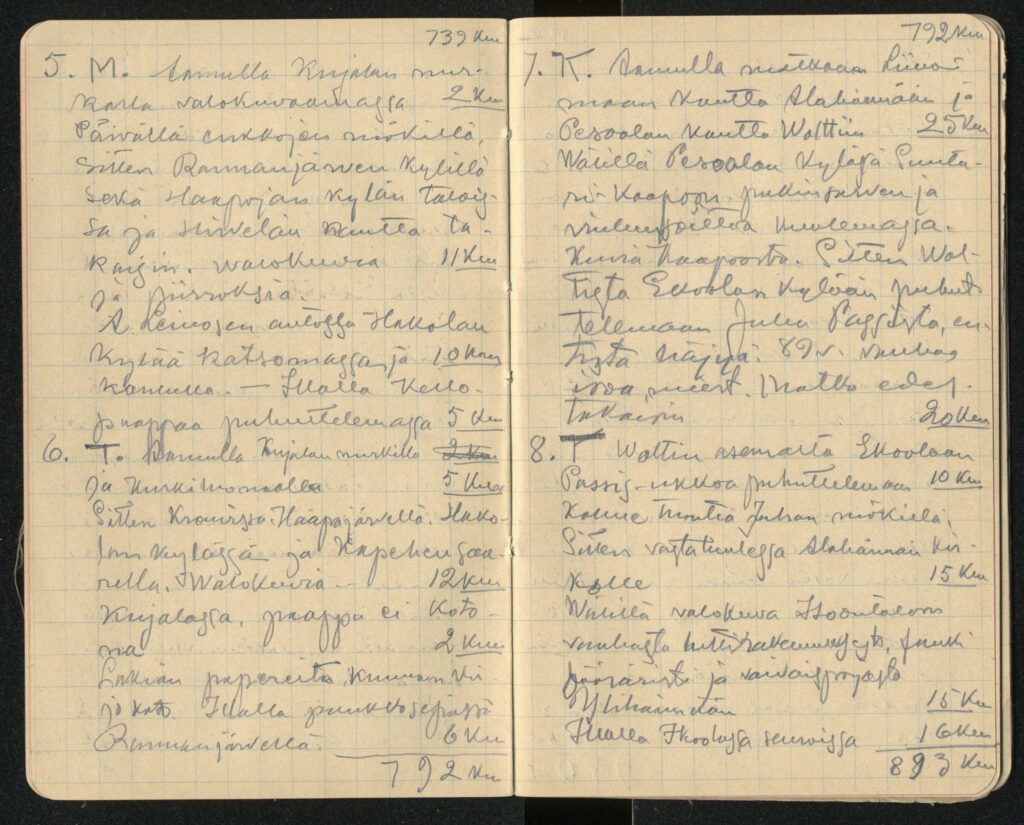 739 Km
5. M. Aamulla Kujalan nur-
kasta valokuvaamassa 2 Km
Päivällä ukkojen mökillä,
Sitten Rannanjärven kylillä
Sekä Haapojan kylän talois-
sa ja Hirvelän kautta ta-
kaisin. Walokuvia 11 Km
ja piirroksia.
A Leinosen autossa Hakolan
kylää katsomassa ja 10 Km
— Illalla Kello-
paappaa puhuttelemassa 5 Km
6. T. Aamulla Kujalan nurkilla 2 Km
ja 5 Km
Sitten Haapojärvellä. Hako-
lan kylässä ja
rella. Walokuvia — 12 Km
Kujalassa, paappa ei koto-
na 2 Km
papereita,
Illalla puukkosepässä
Rannanjärvellä. 6 Km
792 Km
792 Km
7. K. Aamulla matkaan Liino-
maan kautta Alahärmään ja
Pesoolan kautta Wolttiin 25 Km
Wälillä Pesoolan kylässä Luuta-
ri-Kaapoon pukinsarven ja
viulunsoittoa kuulemassa.
Kuvia Kaapoosta. Sitten Wol-
tista Ekoolan kylään puhut-
telemaan Juha Passista, en-
tistä häjyä. 89 v. vanhaa
mies. Matka edes-
takaisin 20 Km
8. T Woltin asemasta Ekoolaan
Passis-ukkoa puhuttelemaan 10 Km
Kolme tuntia Juhan mökillä,
Sitten vastatuulessa Alahärmän kir-
kolle 15 Km
Wälillä valokuva
vanhasta
ja vaivaispojasta
Ylihärmään 15 Km
Illalla Ikoolassa seuroissa 16 Km
893 Km